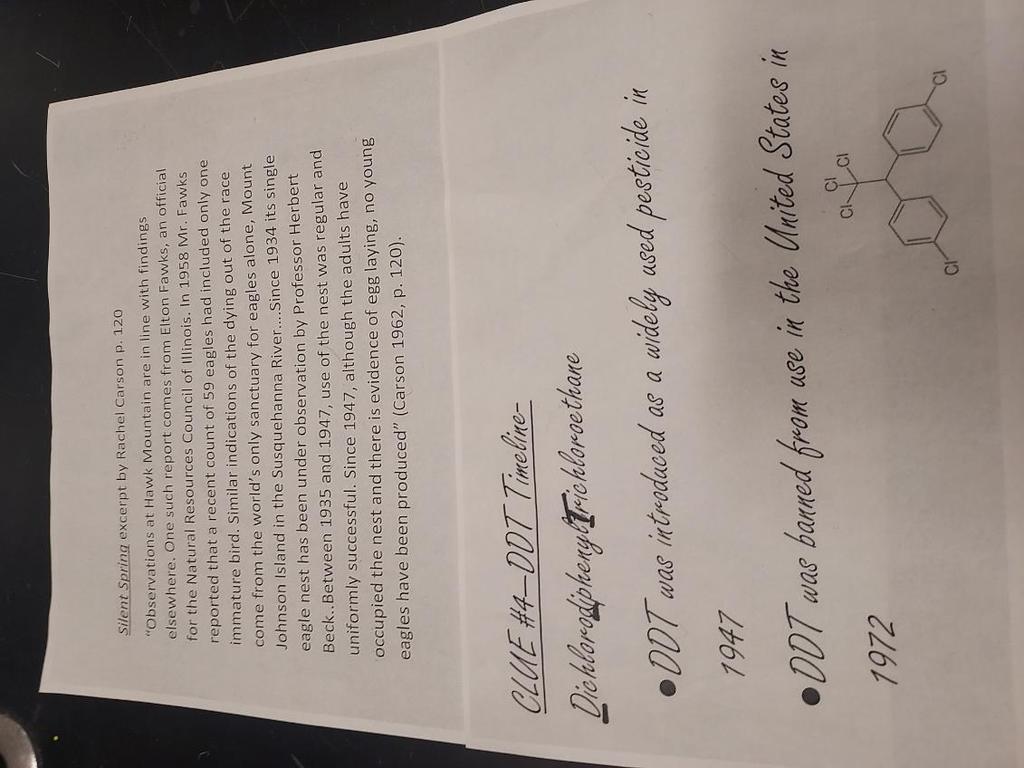 Silent Spring excerpt by Rachel Carson p. 120
"Observations at Hawk Mountain are in line with findings
elsewhere. One such report comes from Elton Fawks, an official
for the Natural Resources Council of Illinois. In 1958 Mr. Fawks
reported that a recent count of 59 eagles had included only one
immature bird. Similar indications of the dying out of the race
come from the world's only sanctuary for eagles alone, Mount
Johnson Island in the Susquehanna River....Since 1934 its single
eagle nest has been under observation by Professor Herbert
Beck..Between 1935 and 1947, use of the nest was regular and
uniformly successful. Since 1947, although the adults have
occupied the nest and there is evidence of egg laying, no young
eagles have been produced" (Carson 1962, p. 120).
CLUE #4—DDT Timeline-
DichlorodiphenylTrichloroethane
•DDT was introduced as a widely used pesticide in
1947
•DDT was banned from use in the United States in
1972
Cl
Cl
Cl
Cl
Cl